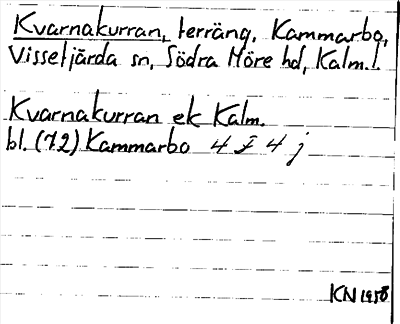 Kvarnakurran, terräng, Kammarbo,
Vissefjärda sn, Södra Möre hd, Kalm. l.
Kvarnakurran ek Kalm.
bl. (72) Kammarbo 4 I 4 j
KN 1958